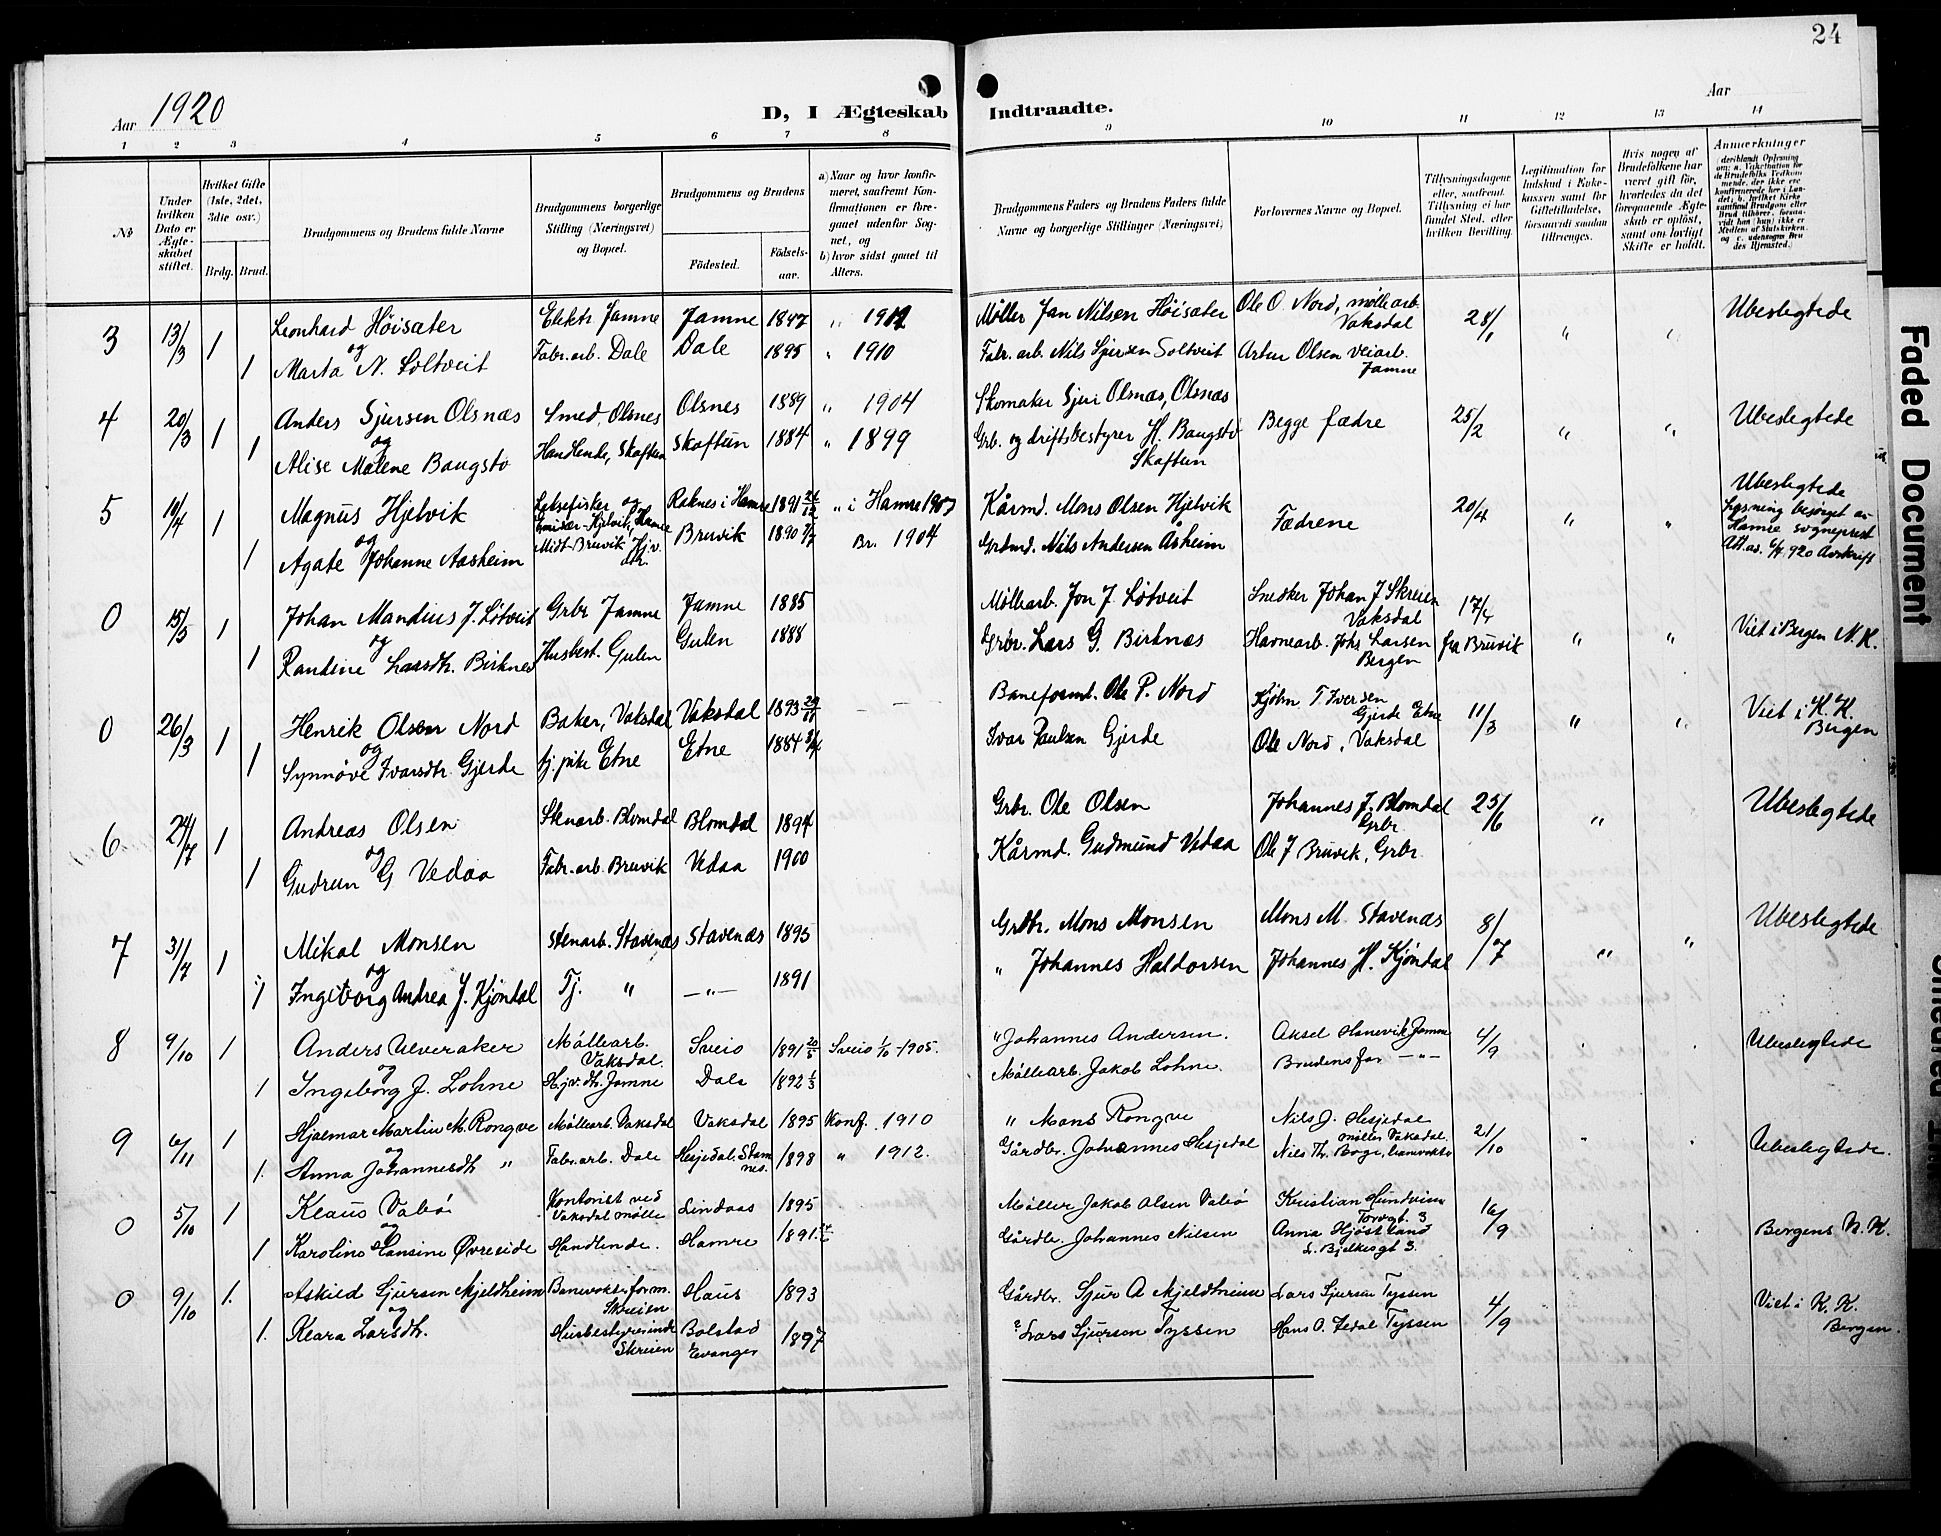 24
Aar 1920
D, I Ægteskab Indtraadte.
Aar
1 2 3 4 5 6 7 8 9 10 11 12 13 14
No
Under hvilken Dato er Ægteskabet stiftet.
Hvilket Gifte (1ste, 2det, 3die osv.)
Brdg. Brud.
Brudgommens og Brudens fulde Navne
Brudgommens borgerlige Stilling (Næringsvei) og Bopæl.
Brudgommens og Brudens
Födested.
Födselsaar.
a) Naar og hvor konfirmeret, saafremt Konfirmationen er foregaaet udenfor Sognet, og
b) hvor sidst gaaet til Alters.
Brudgommens Faders og Brudens Faders fulde Navne og borgerlige Stillinger (Næringsvei)
Forlovernes Navne og Bopæl.
Tillysningsdagene eller, saafremt Tillysning ei har fundet Sted, efter hvilken Bevilling.
Legitimation for Indskud i Enkekassen samt for Giftetilladelse, forsaavidt saadan tiltrænges.
Hvis nogen af Brudefolkene har været gift för, hvorledes da det foregaaende Ægteskab er oplöst, samt om lovligt Skifte er holdt.
Anmerkninger
3 13/3 1 Leonhard Höisæter Elektr Jamne Jamne 1847 " 1912 Møller Jan Nilsen Höisæter Ole O. Nord, møllearb. Vaksdal 28/1 " " Ubeslegtede
og
1 Marta N. Soltveit Fabr.arb. Dale Dale 1895 " 1910 Fabr. arb. Nils Sjursen Soltveit Artur Olsen veiarb. Jamne
4 20/3 1 Anders Sjursen Olsnæs Smed, Olsnes Olsnes 1889 " 1904 Skomaker Sjur Olsnæs, Olsnæs Begge fædre 25/2 " " Ubeslegtede
og
1 Alise Malene Baugsto Handlende, Skaftun Skaftun 1884 " 1899 Grb. og driftsbestyrer H. Baugsto Skaftun
5 10/4 1 Magnus Hjelvik Laksefisker og Emisær Hjelvik, Hamre Raknes i Hamre 1891 " i Hamre 1907 Kårmd. Mons Olsen Hjelvik Fædrene 20/4 " " Ubeslegtede
og Lysning besørget av Hamre sogneprest
1 Agate Johanne Aasheim Midt-Bruvik Hjv. dtr. Bruvik 1890 Br. 1904 Grdmd. Nils Andersen Åsheim Att. av 6/4 920 Avskrift
0 15/5 1 Johan Mandius J. Lötveit Grbr Jamne Jamne 1885 Møllearb. Jon J. Lötveit Snekker Johan J Skreien Vaksdal 17/4
og
1 Randine Larsdtr. Birknes Husbest. Gulen Gulen 1888 Grbr. Lars G. Birknæs Havnearb. Johs Larsen Bergen fra Bruvik " " Viet i Bergen N. K.
0 26/3 1 Henrik Olsen Nord Baker, Vaksdal Vaksdal 1893 29/11 — — Baneformd. Ole P. Nord Kjøbm. T. Iversen Gjerde Etne 11/3 " " Viet i K. K. Bergen
og
1 Synnöve Ivarsdtr Gjerde tj. pike Etne Etne 1884 Ivar Paulsen Gjerde Ole Nord, Vaksdal
6 24/7 1 Andreas Olsen Stenarb. Blomdal Blomdal 1894 Grbr. Ole Olsen Johannes J. Blomdal Grbr 25/6 " Ubeslegtede
og
1 Gudrun G Vedaa Fabr.arb. Bruvik Vedaa 1900 Kårmd. Gudmund Vedaa Ole J Bruvik, Grbr.
7 31/7 1 Mikal Monsen Stenarb. Stavenæs Stavenæs 1895 Grdbr. Mons Monsen Mons M. Stavenæs 8/7 " " Ubeslegtede
og
1 Ingeborg Andrea J. Kjöndal Tj. " —"— 1891 " Johannes Haldorsen Johannes H. Kjöndal
8 9/10 1 Anders Ulveraker Møllearb. Vaksdal. Sveio 1891 20/5 Sveio 1/10 - 1905. " Johannes Andersen. Aksel Hanevik Jamne 4/9 Ubeslegtede
og
1 Ingeborg J. Lohne Hjv. dtr. Jamne Dale 1892 1/3 Møllearb. Jakob Lohne. Brudens far —"—
9 6/11 1 Hjalmar Martin M. Rongve Møllearb. Vaksdal Vaksdal 1895 Konf. 1910 " Mons Rongve Nils J. Hesjedal møller Vaksdal. 21/10 Ubeslegtede.
og
1. Anna Johannesdtr " Fabr. arb. Dale Hesjedal, Stamnes. 1898 " 1912. Gårdbr. Johannes Hesjedal Nils Th. Boge, banevokter
0 5/10 1 Klaus Vabö Kontorist ved Vaksdal mölle Lindaas 1895 Møller Jakob Olsen Vabö Kristian Hundvin Torvgt. 3 16/9
og
1 Karoline Hansine Övreeide Handlende. Hamre 1891 Gårdbr. Johannes Nilsen Anna Hjöstland L. Bjelkesgt 3. Bergens N. K.
0 9/10 1. Askild Sjursen Mjeldheim Banevokterform. Skreien Haus 1893 Gårdbr. Sjur A Mjeldheim Lars Sjursen Tyssen 4/9 Viet i K. K. Bergen.
og
1. Klara Larsdtr. Husbestyrerinde Skreien Bolstad Evanger 1897 Lars Sjursen Tyssen Hans O. Tyssen
Faded Document